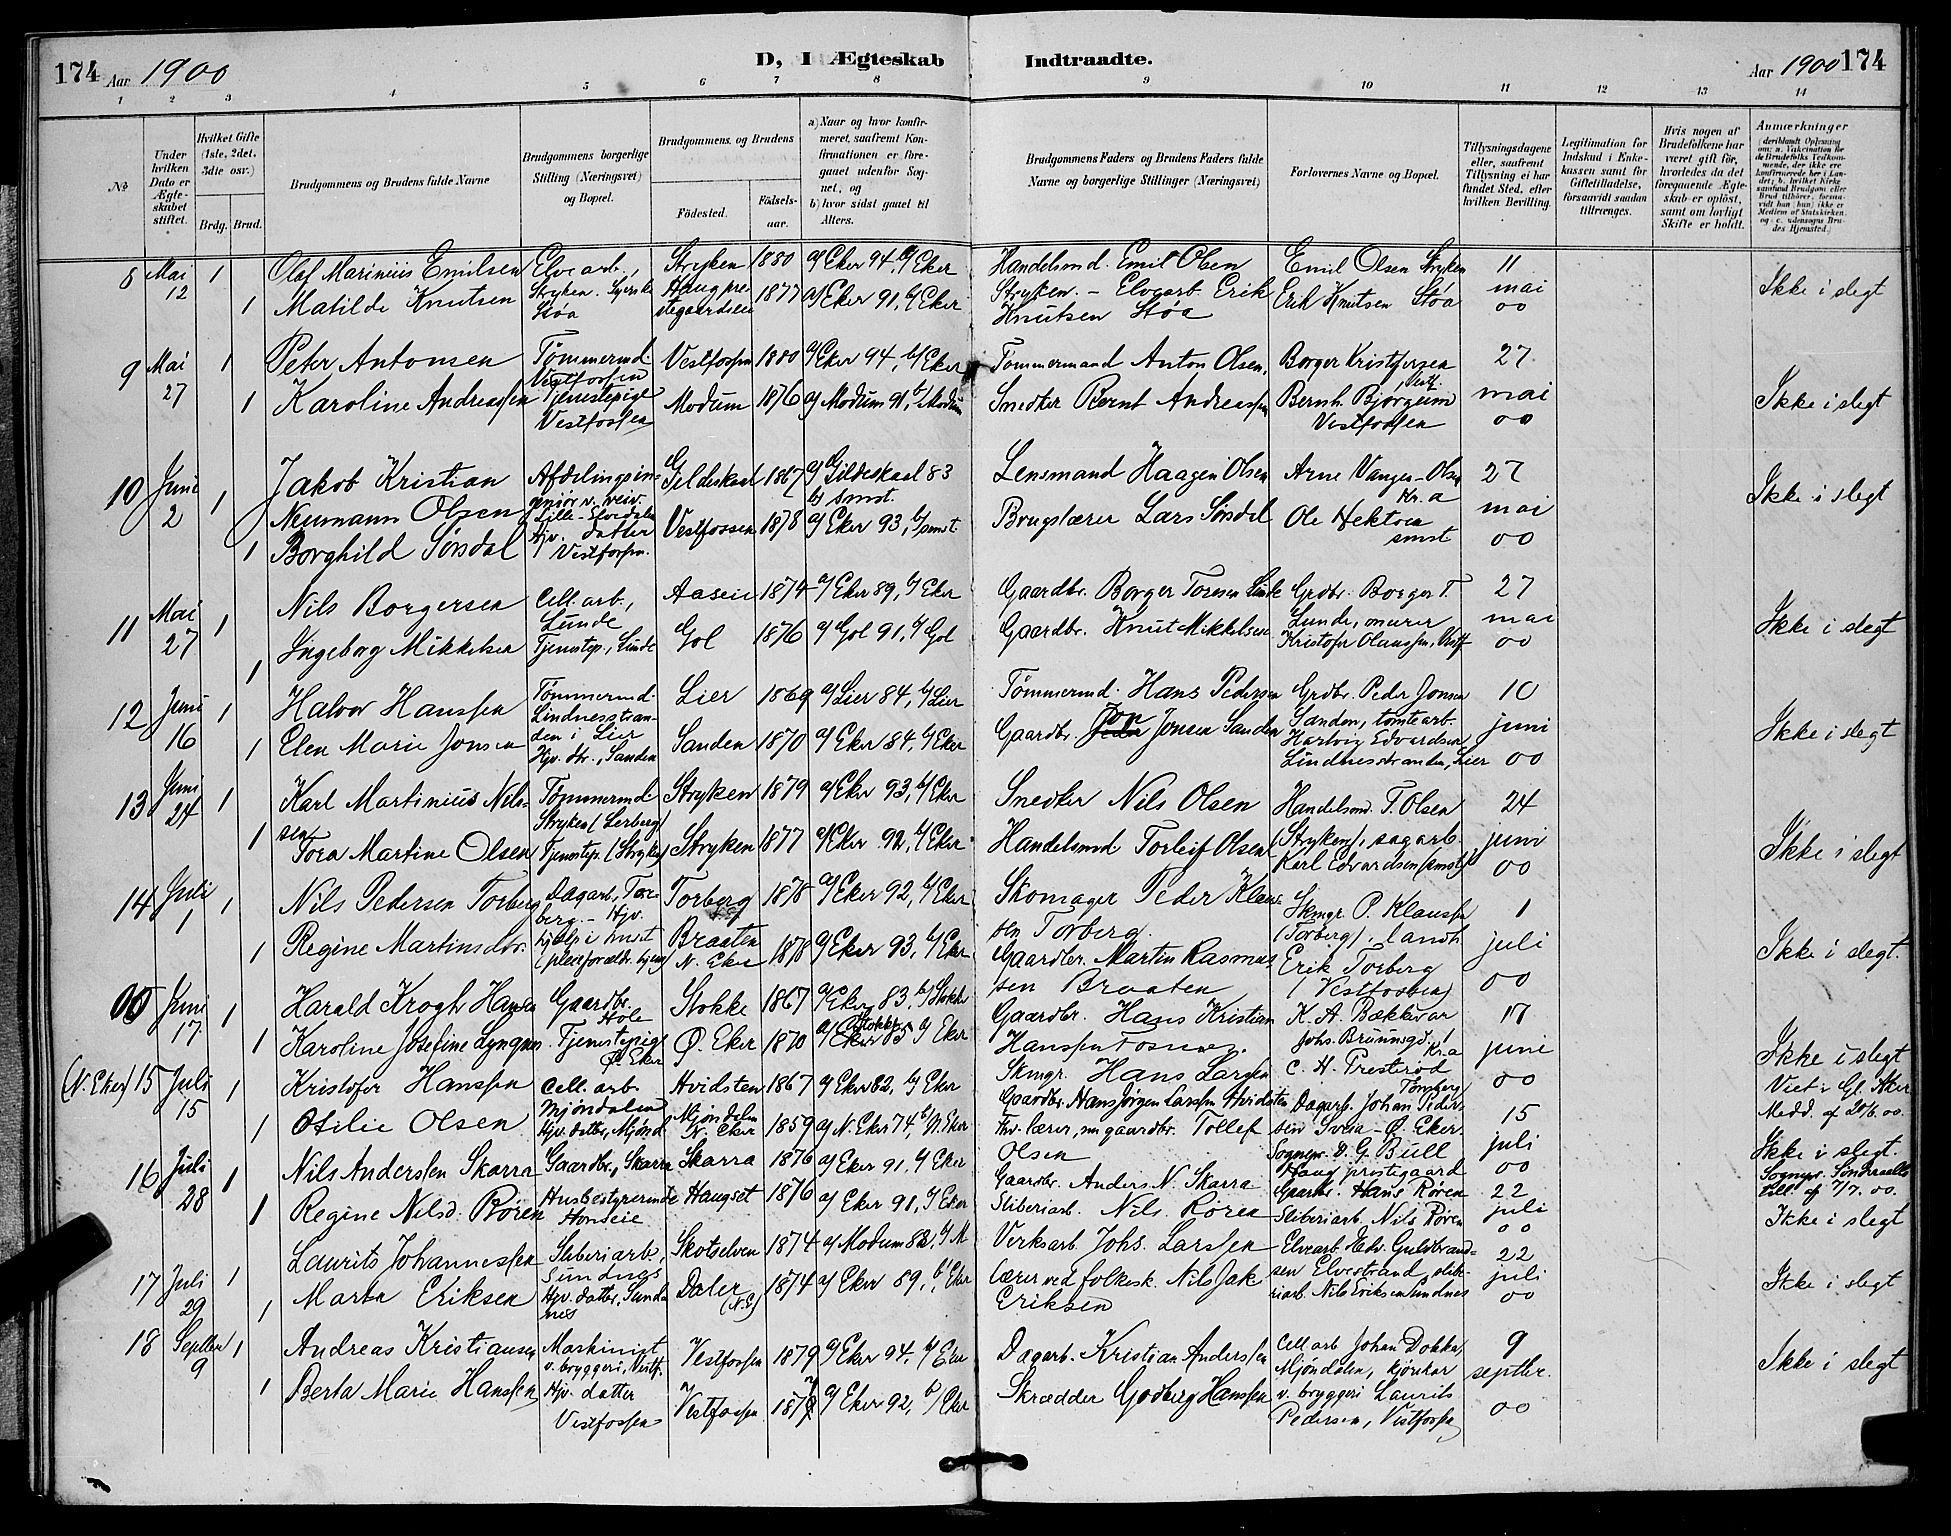 174 Aar 1900 D, I Ægteskab Indtraadte. Aar 1900 174
1 2 3 4 5 6 7 8 9 10 11 12 13 14
No
Under hvilken Dato er Ægteskabet stiftet.
Hvilket Gifte (1ste, 2det, 3die osv.)
Brdg. Brud.
Brudgommens og Brudens fulde Navne
Brudgommens borgerlige Stilling (Næringsvei) og Bopæl.
Brudgommens og Brudens
Fødested. Fødselsaar.
a) Naar og hvor konfirmeret, saafremt Konfirmationen er foregaaet udenfor Sognet, og
b) hvor sidst gaaet til Alters.
Brudgommens Faders og Brudens Faders fulde Navne og borgerlige Stillinger (Næringsvei)
Forlovernes Navne og Bopæl.
Tillysningsdagene eller, saafremt Tillysning ei har fundet Sted, efter hvilken Bevilling.
Legitimation for Indskud i Enkekassen samt for Giftetilladelse, forsaavidt saadan tiltrænges.
Hvis nogen af Brudefolkene har været gift før, hvorledes da det foregaaende Ægteskab er opløst, samt om lovligt Skifte er holdt.
Anmærkninger
8 Mai 12 1 Olaf Marinius Emilsen Elvearb., Stryken 1880 a/ Eker 94, b/ Eker Handelsmd. Emil Olsen Emil Olsen Stryken 11
1 Matilde Knutsen Stryken. Støa Haug prestegaardseie 1877 a/ Eker 91, b/ Eker Stryken. - Elvearb. Erik Knutsen Støa Erik Knutsen Støa mai 00 Ikke i slegt
9 Mai 27 1 Peter Antonsen Tømmermd. Vestfossen Vestfossen 1880 a/ Eker 94, b/ Eker Tømmermand Anton Olsen, Borger Kristofersen Vestf. 27
1 Karoline Andreassen Tjenestepige Vestfossen Modum 1876 a/ Modum 91, b/ Modum Snedker Bernt Andreassen Bernh. Bjørgum Vestfossen mai 00 Ikke i slegt
10 Juni 2 1 Jakob Kristian Neumann Olsen Afdelingsingeniør v. veiv. Lille-Elvedalen Gildeskaal 1867 a/ Gildeskaal 83 b/ smst. Lensmand Haagen Olsen Arne Vangen-Olsen Kr.a 27
1 Borghild Sørsdal Hjv. datter Vestfossen. Vestfossen 1878 a/ Eker 93, b/ smst. Brugslærer Lars Sørsdal Ole Hektoen smst mai 00 Ikke i slegt
11 Mai 27 1 Nils Borgersen Cell. arb., Lunde Aaseie 1874 a/ Eker 89, b/ Eker Gaardbr. Borger Toresen Lunde Grdbr. Borger T. Lunde, murer 27
1 Ingeborg Mikkelsen Tjenestep., Lunde Gol 1876 a/ Gol 91, b/ Gol Gaardbr. Knut Mikkelsen Kristofer Olaussen, Vestf. mai 00 Ikke i slegt
12 Juni 16 1 Halvor Hanssen Tømmermd. Lindnesstranden i Lier Lier 1869 a/ Lier 84, b/ Lier Tømmermd. Hans Pedersen Grdbr. Peder Jonsen Sanden, tomtearb. 10
1 Elen Marie Jonsen Hjv. dtr., Sanden Sanden 1870 a/ Eker 84, b/ Eker Gaardbr. Jon Jonsen Sanden Hartvig Edvardsen, Lindnesstranden, Lier juni 00 Ikke i slegt
13 Juni 24 1 Karl Martinius Nilssen Tømmermd. Stryken (Lerberg) Stryken 1879 a/ Eker 93, b/ Eker Snedker Nils Olsen Handelsmd. T. Olsen 24
1 Tora Martine Olsen Tjenestep. (Stryken) Stryken 1877 a/ Eker 92, b/ Eker Handelsmd Torleif Olsen (Stryken), sagarb. Karl Edvardsen (smst) juni 00 Ikke i slegt
14 Juli 1 1 Nils Pedersen Torberg Dagarb., Torberg. - Torberg 1878 a/ Eker 92, b/ Eker Skomager Peder Klaussen Torberg. Skmgr. P. Klaussen (Torberg), landh. 1
1 Regine Martinsdtr. Hjv. hjælp i huset Braaten N. Eker 1878 a/ Eker 93, b/ Eker Gaardbr. Martin Rasmussen Braaten Erik Torberg (Vestfossen) juli 00 Ikke i slegt.
00 Juni 17 1 Harald Krogh Hansen Gaardbr. Hole Stokke 1867 a/ Eker 83, b/ Stokke Gaardbr. Hans Kristian Hanssen K. A. Bækkevar Johs. Bruunsgd., Kr.a 17
1 Karoline Josefine Lyngnes Tjenestepige Ø. Eker Ø. Eker 1870 a/ Eker 85 b/ Eker Skmgr. Hans Larsen C. H. Presterød Tønsberg juni 00 Ikke i slegt Viet i Gl. Aker Medd. af
(N. Eker) 15 Juli 15 1 Kristofer Hanssen Cell. arb. Mjøndalen Hvidsten 1867 a/ Eker 82, b/ Eker Gaardbr. Hans Jørgen Larssen Hvidsten Dagarb. Johan Pedersen Svea - Ø. Eker. 15
1 Otilie Olsen Hjv. datter, Mjønd. Mjøndalen N. Eker 1859 a/ N. Eker 74, b/ N. Eker Fhv. lærer, nu gaardbr. Tollef Olsen Sognepr. D. G. Bull Haug prestegaard juli 00 Ikke i slegt. Sognepr. till. af 7/7. 00.
16 Juli 28 1 Nils Anderssen Skarra Gaardbr., Skarra Skarra 1876 a/ Eker 91, b/ Eker Gaardbr. Anders N. Skarra Gaardbr. Hans Røren 22
1 Regine Nilsd. Røren Husbestyrerinde Horseie Haugset 1876 a/ Eker 91, b/ Eker Sliberiarb. Nils Røren Sliberiarb. Nils Røren juli 00 Ikke i slegt
17 Juli 29 1 Laurits Johannessen Sliberiarb. Sundnes Skotselven 1874 a/ Modum 88, b/ M Verksarb. Johs. Larssen Elvearb. Edv. Guldbrandsen Elvestrand, 22
1 Marta Eriksen Hjv. datter, Sundnes Daler (N.E) 1874 a/ Eker 89, b/ Eker Lærer ved folkesk. Nils Jak. Eriksen sliberiarb. Nils Eriksen Sundnes juli 00 Ikke i slegt
18 Septber 9 1 Andreas Kristiansen Maskinist v. bryggeri, Vestf. Vestfossen 1879 a/ Eker 94, b/ Eker Dagarb. Kristian Anderssen Cell. arb. Johan Dokka, Mjøndalen, kjørekar 9
1 Berta Marie Hanssen Hjv. datter Vestfossen Vestfossen 1877 a/ Eker 92, b/ Eker Skrædder Godberg Hanssen v. bryggeri Laurits Pedersen, Vestfossen septbr. 00 Ikke i slegt